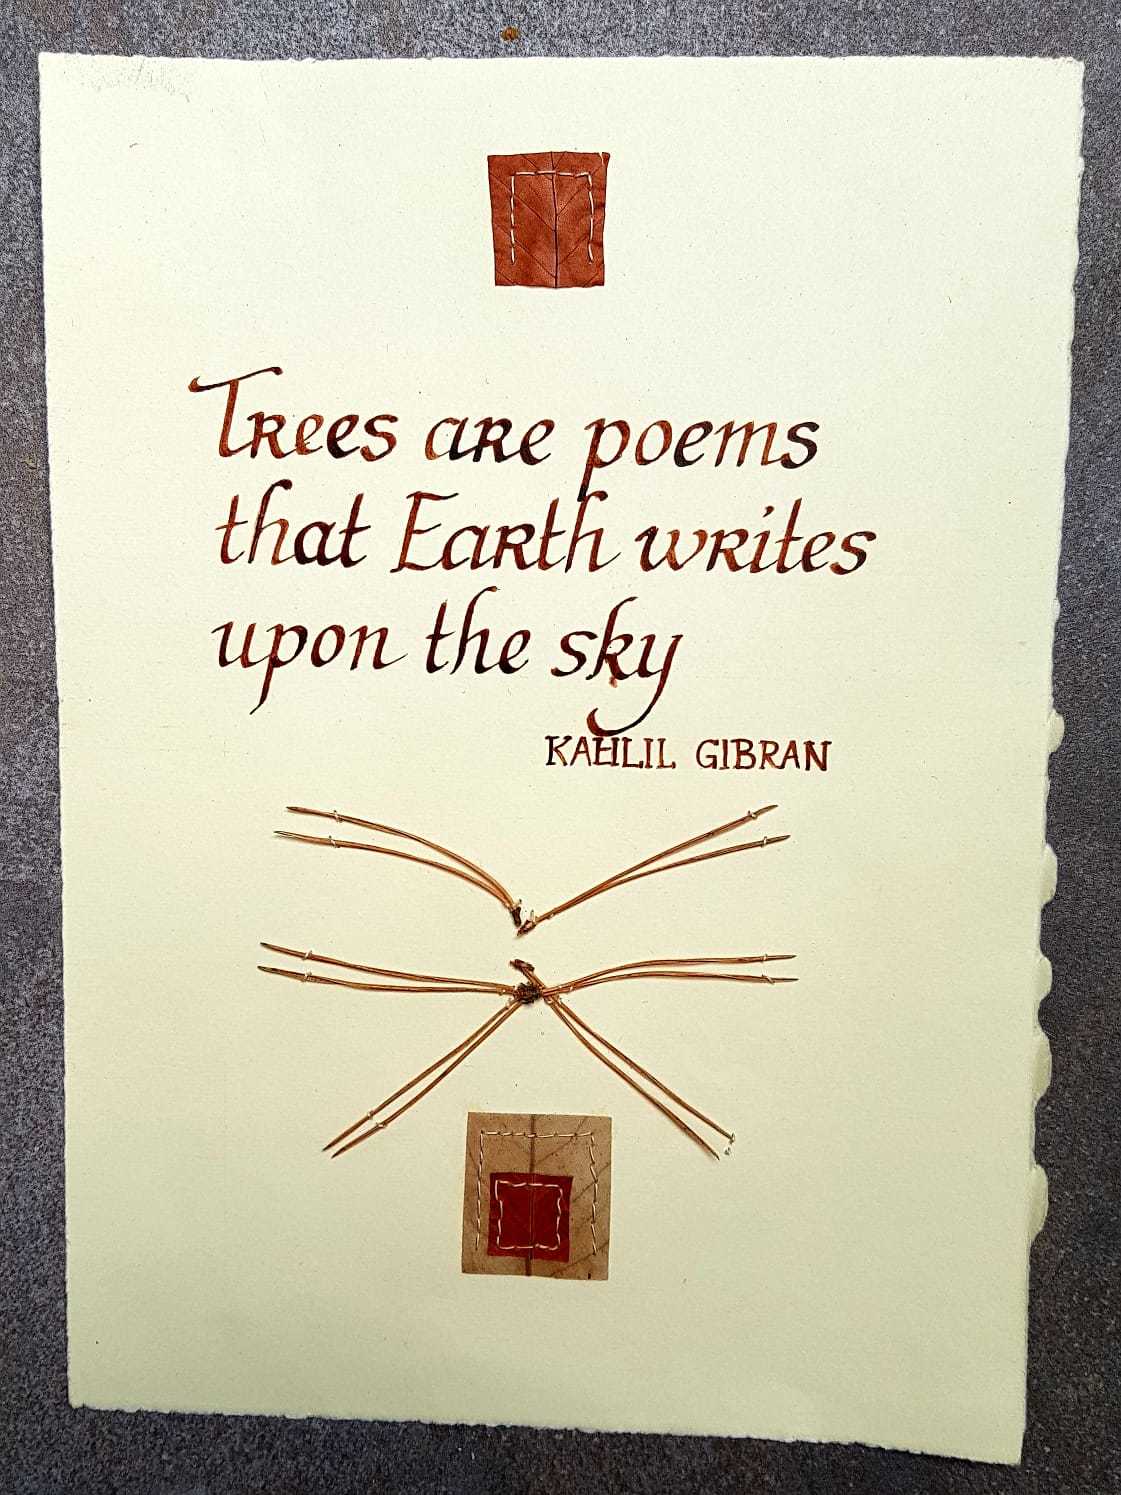 Trees are poems
that Earth writes
upon the sky
KAHLIL GIBRAN